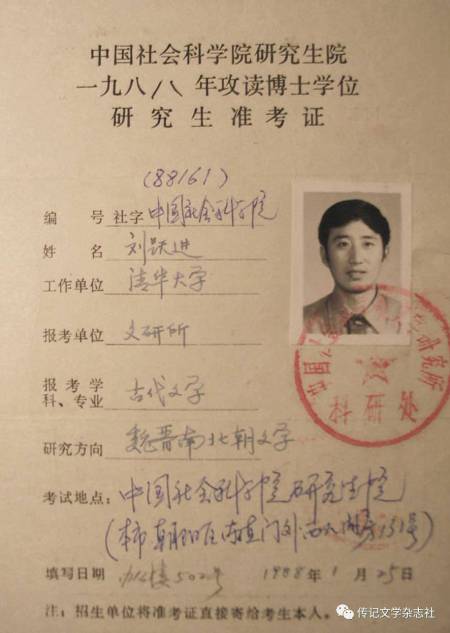 中国社会科学院研究生院
一九八八年攻读博士学位
研究生准考证
(88161)
编 号 社字 中国社会科学院
姓 名 刘跃进
工作单位 清华大学
报考单位 文研所
报考学
科、专业 古代文学
研究方向 魏晋南北朝文学
考试地点：中国社会科学院研究生院
(本市朝阳区东直门外西八间房151号)
填写日期 办公楼502号 1988年1月25日
注：招生单位将准考证直接寄给考生本人。
研究所
科研处
传记文学杂志社